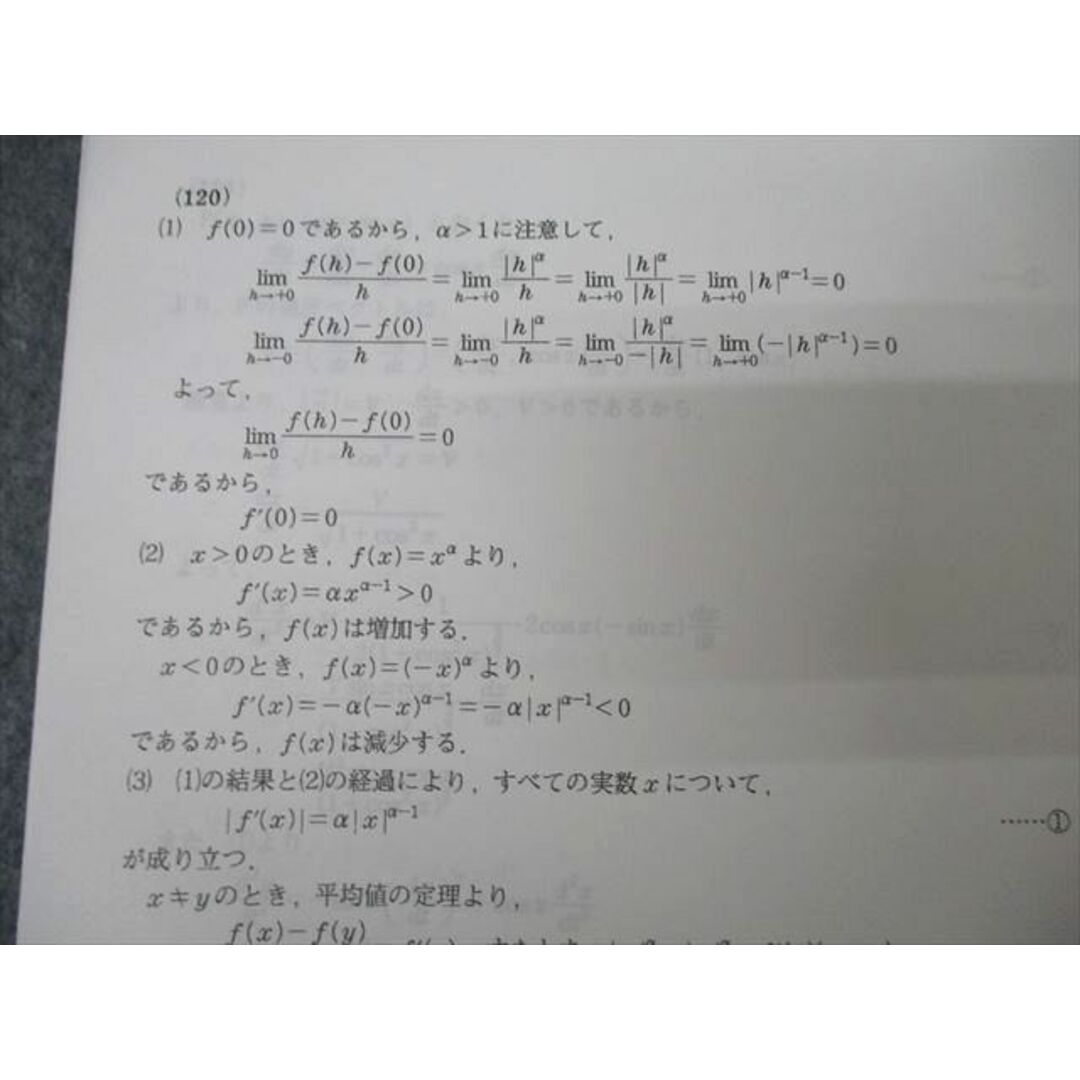 (120)
(1) f(0)=0であるから，α>1に注意して，
lim_{h→+0} (f(h)−f(0))/h = lim_{h→+0} |h|^α/h = lim_{h→+0} |h|^α/|h| = lim_{h→+0} |h|^{α−1}=0
lim_{h→−0} (f(h)−f(0))/h = lim_{h→−0} |h|^α/h = lim_{h→−0} |h|^α/−|h| = lim_{h→+0} (−|h|^{α−1})=0
よって，
lim_{h→0} (f(h)−f(0))/h =0
であるから，
f′(0)=0
(2) x>0のとき，f(x)=x^αより，
f′(x)=αx^{α−1}>0
であるから，f(x)は増加する．
x<0のとき，f(x)=(−x)^αより，
f′(x)=−α(−x)^{α−1}=−α|x|^{α−1}<0
であるから，f(x)は減少する．
(3) (1)の結果と(2)の経過により，すべての実数xについて，
|f′(x)|=α|x|^{α−1} ……①
が成り立つ．
x≠yのとき，平均値の定理より，
f(x)−f(y)